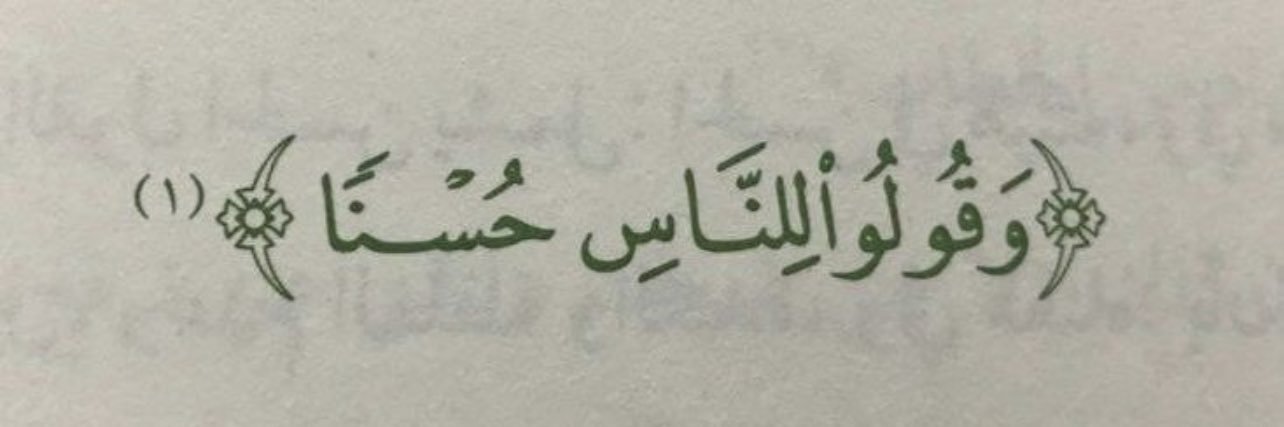 ﴿وَقُولُوا۟ لِلنَّاسِ حُسْنًا﴾ (١)